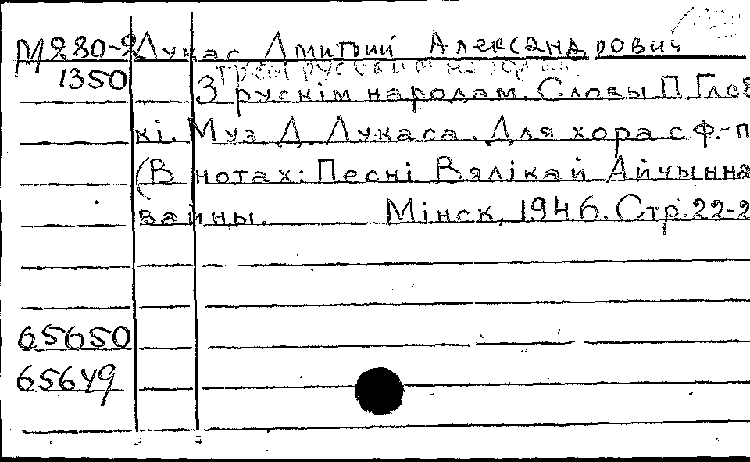 М280-2 Лукас Дмитрий Александрович
1350 З рускім народам. Словы П. Глеб
кі. Муз. Д. Лукаса. Для хора с ф.-п
(В нотах: Песні Вялікай Айчынна
вайны. Мінск, 1946. Стр. 22-2
65650
65649